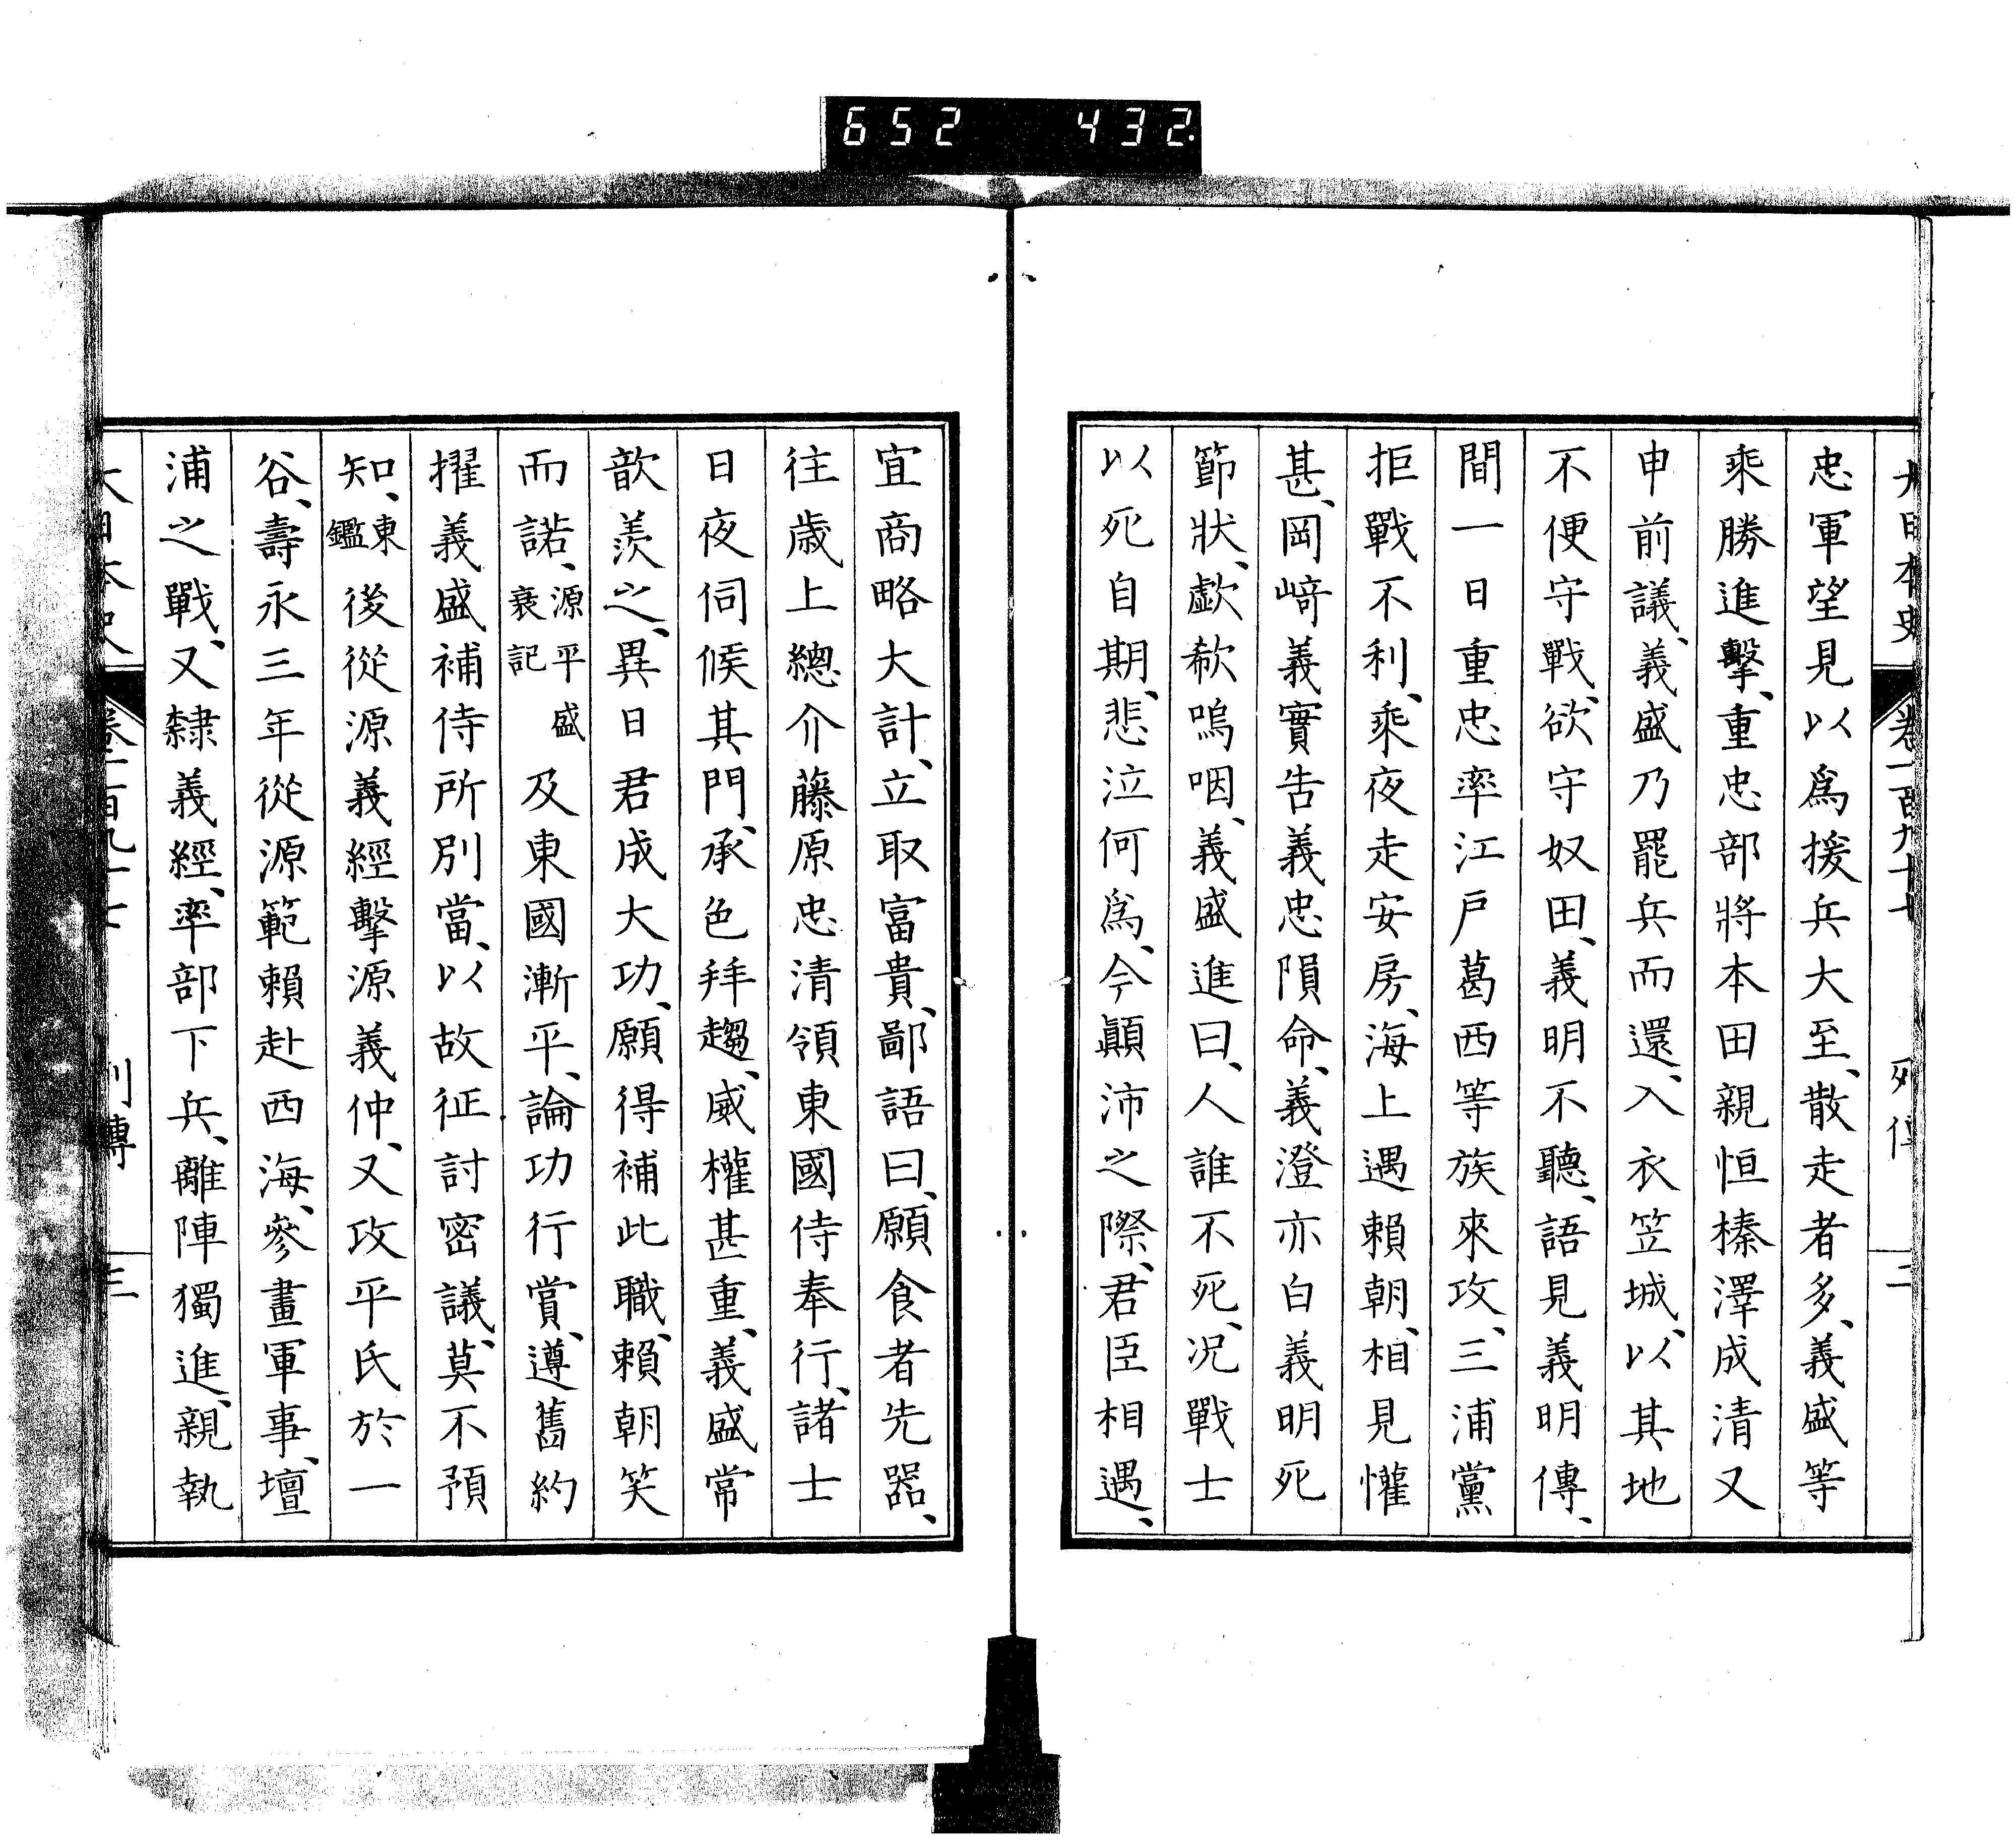 652 432
大日本史 卷一百九十七 列傳 二
忠軍望見以爲援兵大至、散走者多、義盛等
乘勝進擊、重忠部將本田親恒榛澤成清又
申前議、義盛乃罷兵而還、入衣笠城、以其地
不便守戰、欲守奴田、義明不聽、語見義明傳、
間一日重忠率江戸葛西等族來攻、三浦黨
拒戰不利、乘夜走安房、海上遇賴朝、相見懽
甚、岡﨑義實告義忠隕命、義澄亦白義明死
節狀、歔欷嗚咽、義盛進曰、人誰不死、況戰士
以死自期、悲泣何爲、今顚沛之際、君臣相遇、
宜商略大計、立取富貴、鄙語曰、願食者先器、
往歲上總介藤原忠清領東國侍奉行、諸士
日夜伺候其門、承色拜趨、威權甚重、義盛常
歆羨之、異日君成大功、願得補此職、賴朝笑
而諾、源平盛衰記及東國漸平、論功行賞、遵舊約
擢義盛補侍所別當、以故征討密議、莫不預
知、東鑑後從源義經擊源義仲、又攻平氏於一
谷、壽永三年從源範賴赴西海、參畫軍事、壇
浦之戰、又隸義經、率部下兵、離陣獨進、親執
大日本史 卷一百九十七 列傳 三